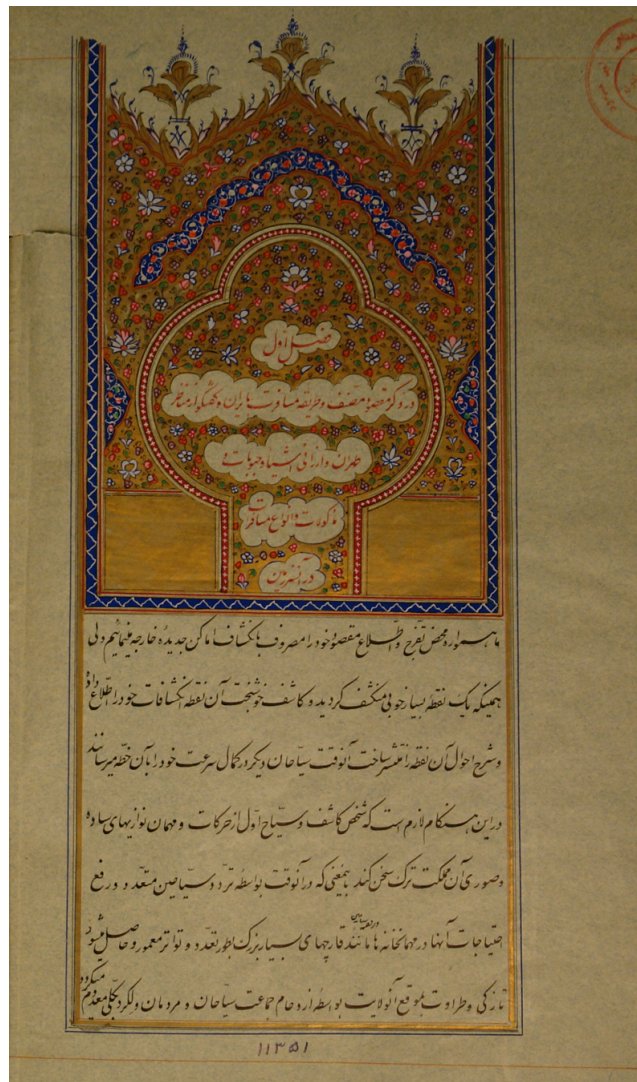 فصل اول
در ذکر مقصود مصنف و طریقه مسافرت بایران و گفتگو از مناظر
طهران و ارزانی اشیا و حبوبات
ماکولات و انواع مسافرات
در آنسرزمین
ما همواره محض تفرج و اطلاع مقصود خود را مصروف بانکشاف اماکن جدیده خارجه مینمائیم ولی
همینکه یک نقطه بسیار خوبی منکشف گردید و کاشف خوشبخت آن نقطه انکشافات خود را اطلاع داد
و شرح احوال آن نقطه را منتشر ساخت آنوقت سیاحان دیگر در کمال سرعت خود را بآن خطه میرسانند
در این هنگام لازم است که شخص کاشف و سیاح اول از حرکات و مهمان نوازیهای ساده
و صوری آن مملکت ترک سخن کند بمعنی که در آنوقت بواسطه تردد سیاحین متعدد و در رفع
احتیاجات آنها در مهمانخانه ها مانند قارچهای بسیار بزرگ بطور تعدد و تواتر معمور و حاصل میشود
تازگی و طراوت بموقع آنولایت بواسطه ازدحام جماعت سیاحان و مردمان ولگرد بکلی معدوم میگردد
۱۱۳۵۱